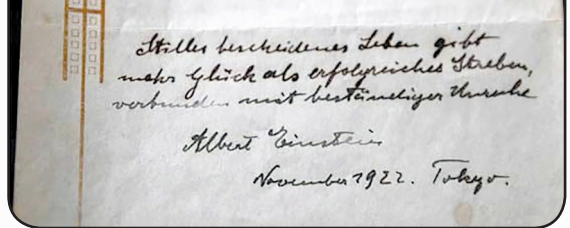 Stilles bescheidenes Leben gibt
mehr Glück als erfolgreiches Streben,
verbunden mit beständiger Unruhe
Albert Einstein
November 1922. Tokyo.